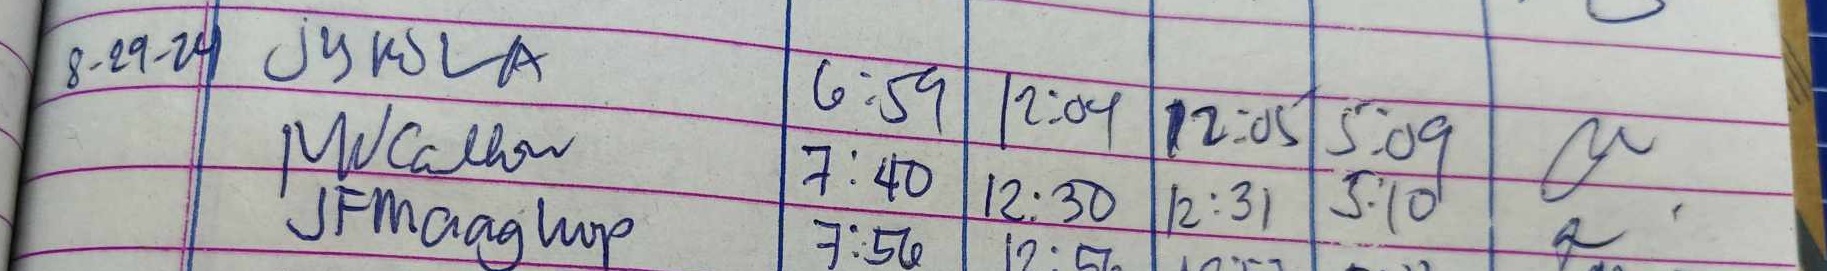 8-29-24 JYKSLA 6:59 12:04 12:05 5:09
7:40 12:30 12:31 5:10
JFMaaghop 7:56 12:56